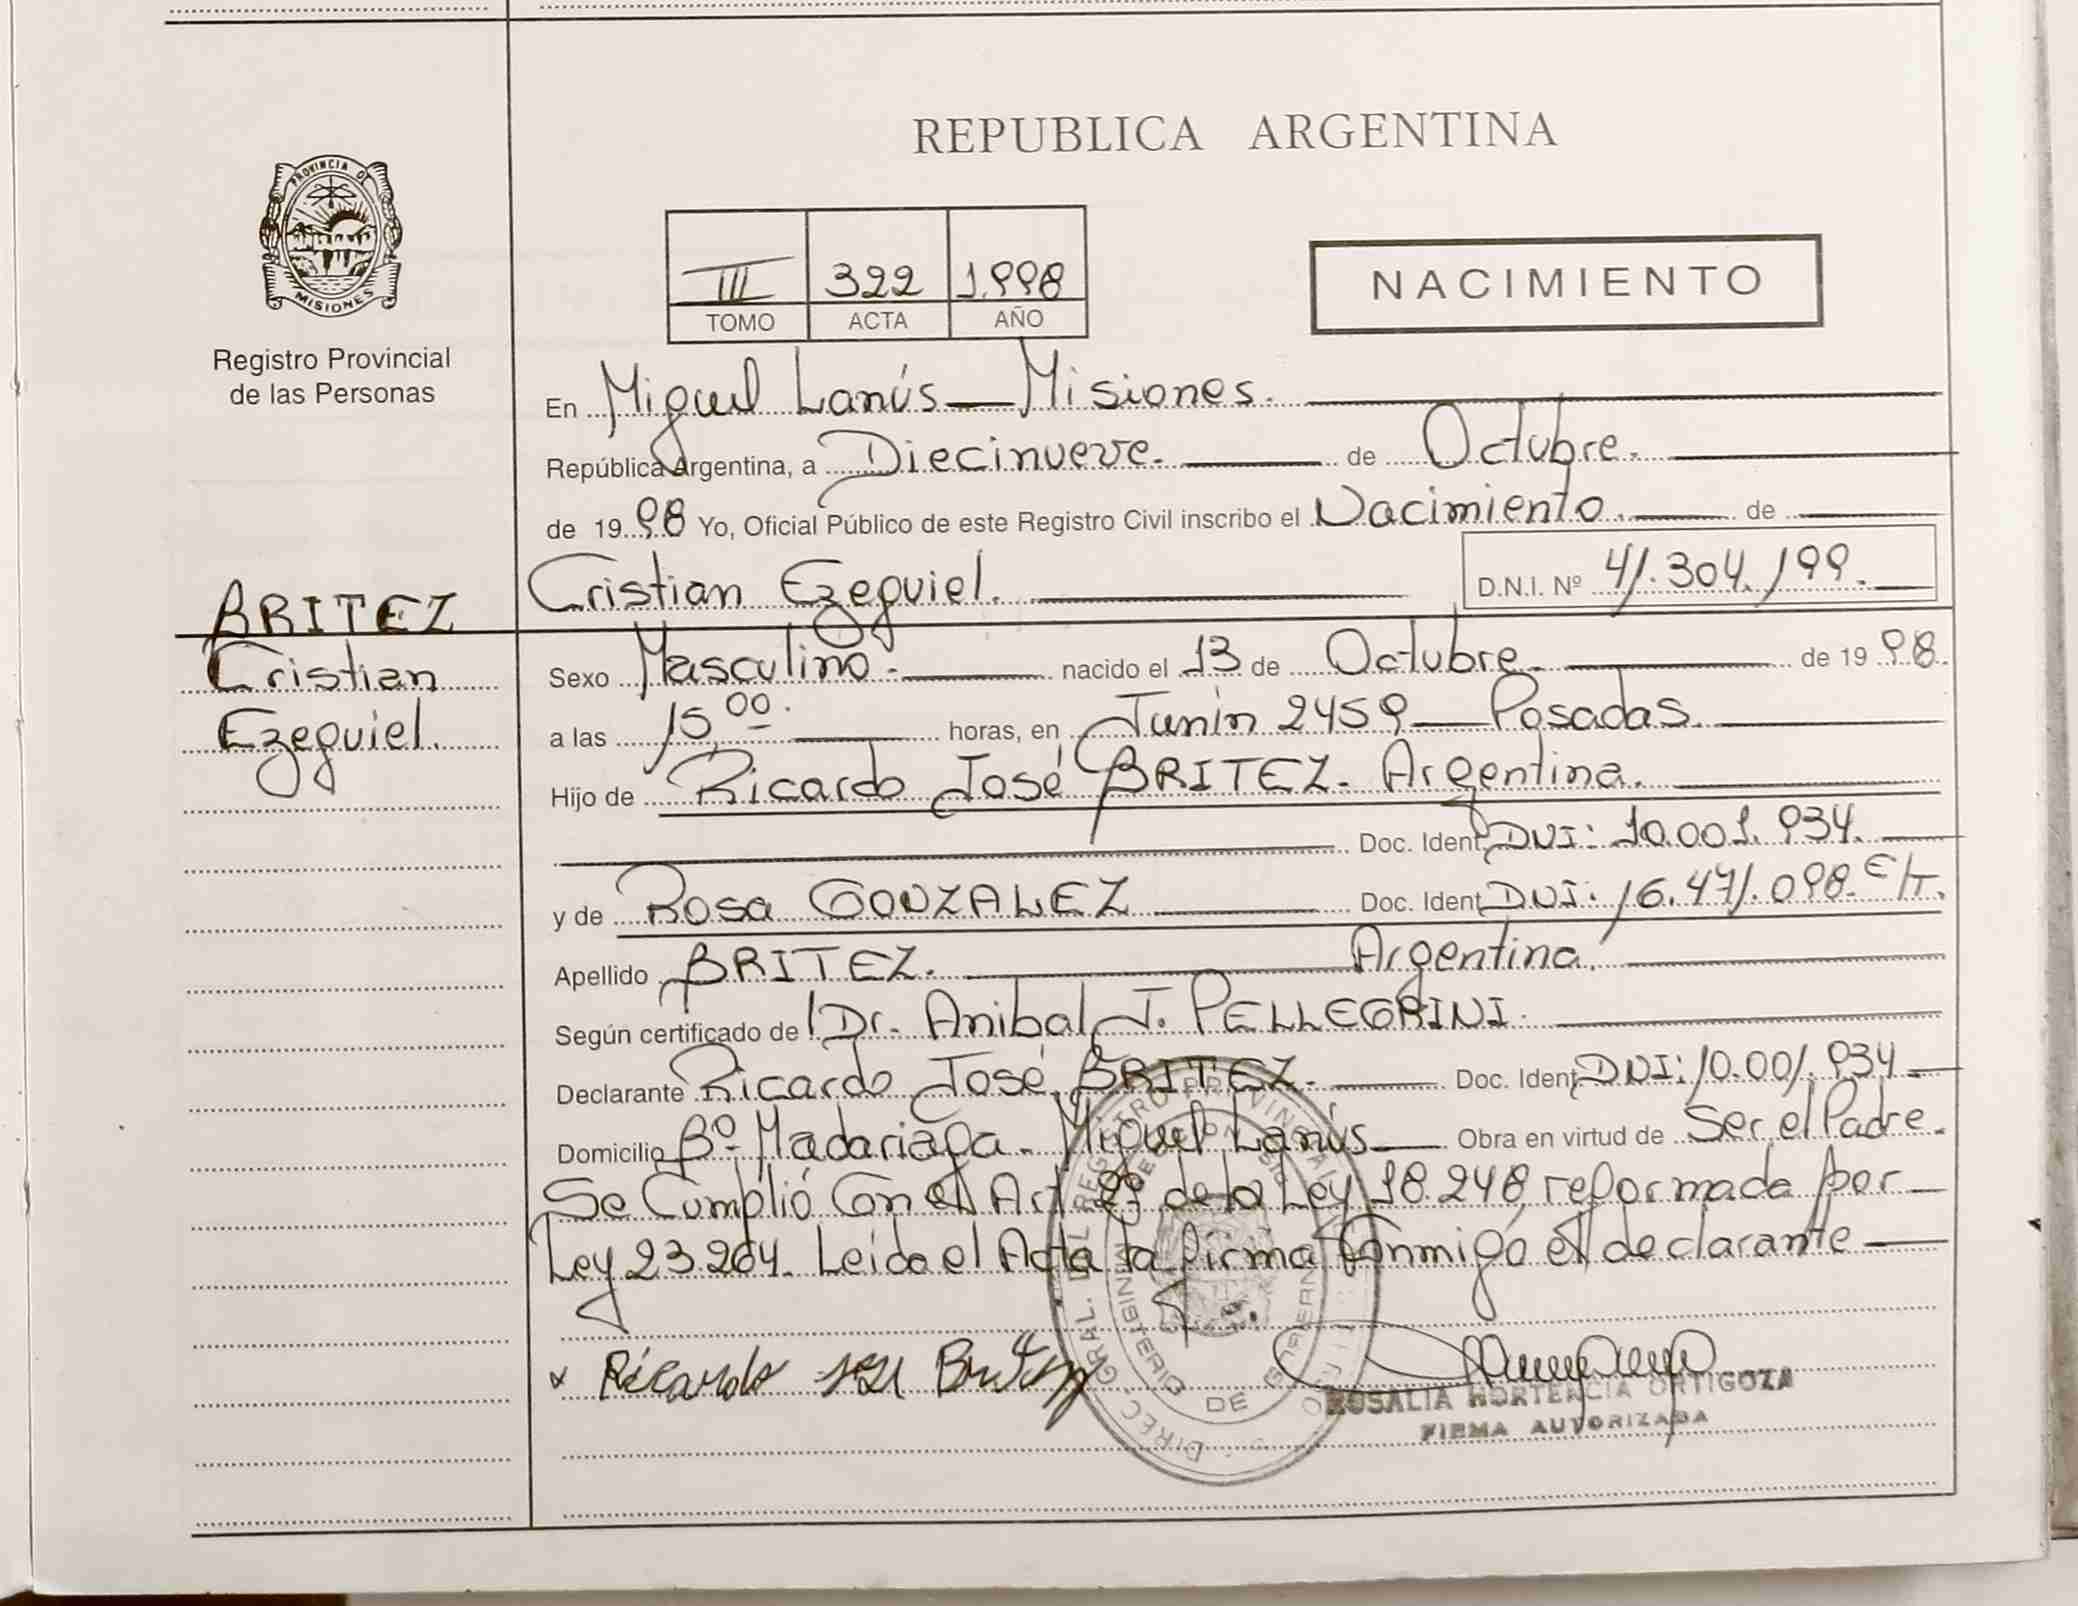 REPUBLICA ARGENTINA
PROVINCIA DE
MISIONES
Registro Provincial
de las Personas
III 322 1.998
TOMO ACTA AÑO
NACIMIENTO
En Miguel Lanús - Misiones.
República Argentina, a Diecinueve. de Octubre.
de 19 98 Yo, Oficial Público de este Registro Civil inscribo el Nacimiento. de
Cristian Ezequiel. D.N.I. Nº 41.304.199.
BRITEZ
Cristian
Ezequiel.
Sexo Masculino. nacido el 13 de Octubre. de 19 98.
a las 15,00. horas, en Junín 2459 - Posadas.
Hijo de Ricardo José BRITEZ. Argentina.
Doc. Ident. DNI: 10.001.934.
y de Rosa GONZALEZ Doc. Ident. DNI: 16.471.098. C/T.
Apellido BRITEZ. Argentina.
Según certificado de Dr. Anibal J. PELLEGRINI.
Declarante Ricardo José BRITEZ. Doc. Ident. DNI: 10.001.934
Domicilio Bº. Madariaga. Miguel Lanús Obra en virtud de Ser el Padre.
Se Cumplió Con el Art. 2º de la Ley 18.248, reformada por
Ley 23.264. Leida el Acta la firma Conmigo el declarante
x Ricardo José Britez
ROSALIA HORTENCIA ORTIGOZA
FIRMA AUTORIZADA
DIREC. GRAL. DEL REGISTRO PROVINCIAL
MINISTERIO DE GOBIERNO